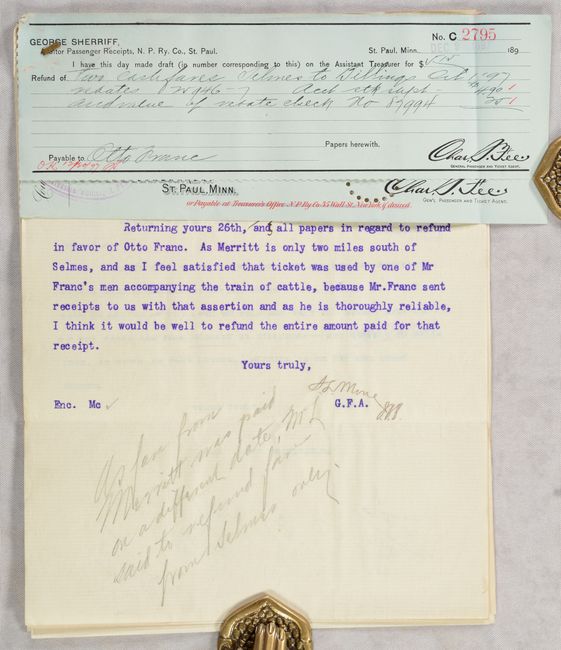 No. C 2795
GEORGE SHERRIFF,
Auditor Passenger Receipts, N. P. Ry. Co., St. Paul.
St. Paul, Minn. DEC 189
I have this day made draft (in number corresponding to this) on the Assistant Treasurer for $
Refund of two cash fares Selmes to Billings Oct 97
rebates 82946-7 Acct stk shpt-
and value of rebate check No 82994
Papers herewith.
Payable to Otto Franc
Chas. S. Fee
GENERAL PASSENGER AND TICKET AGENT.
ST. PAUL, MINN.
Chas. S. Fee
GEN'L PASSENGER AND TICKET AGENT.
or Payable at Treasurer's Office N.P. Ry Co. 35 Wall St. New York if desired
Returning yours 26th, and all papers in regard to refund
in favor of Otto Franc. As Merritt is only two miles south of
Selmes, and as I feel satisfied that ticket was used by one of Mr
Franc's men accompanying the train of cattle, because Mr.Franc sent
receipts to us with that assertion and as he is thoroughly reliable,
I think it would be well to refund the entire amount paid for that
receipt.
Yours truly,
Enc. Mc
G.F.A.
As fare from
Merritt was paid
on a different date
said to refund fare
from Selmes only